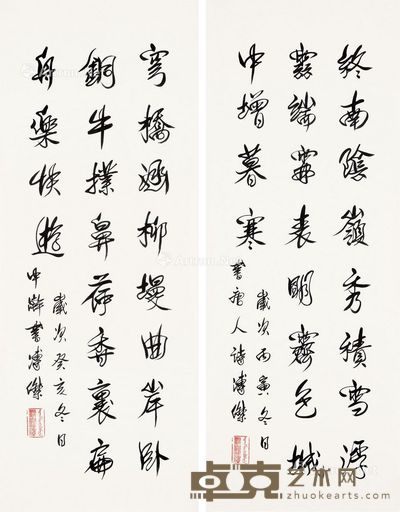 終南陰嶺秀積雪浮
雲端表明霽色城
中增暮寒
歲次丙寅冬日
書唐人詩溥傑
穹橋柳堤曲岸臥
銅牛撲鼻荷香裏扁
舟樂快遊
歲次癸亥冬日
中書溥傑
卓克艺术网
www.zhuokearts.com